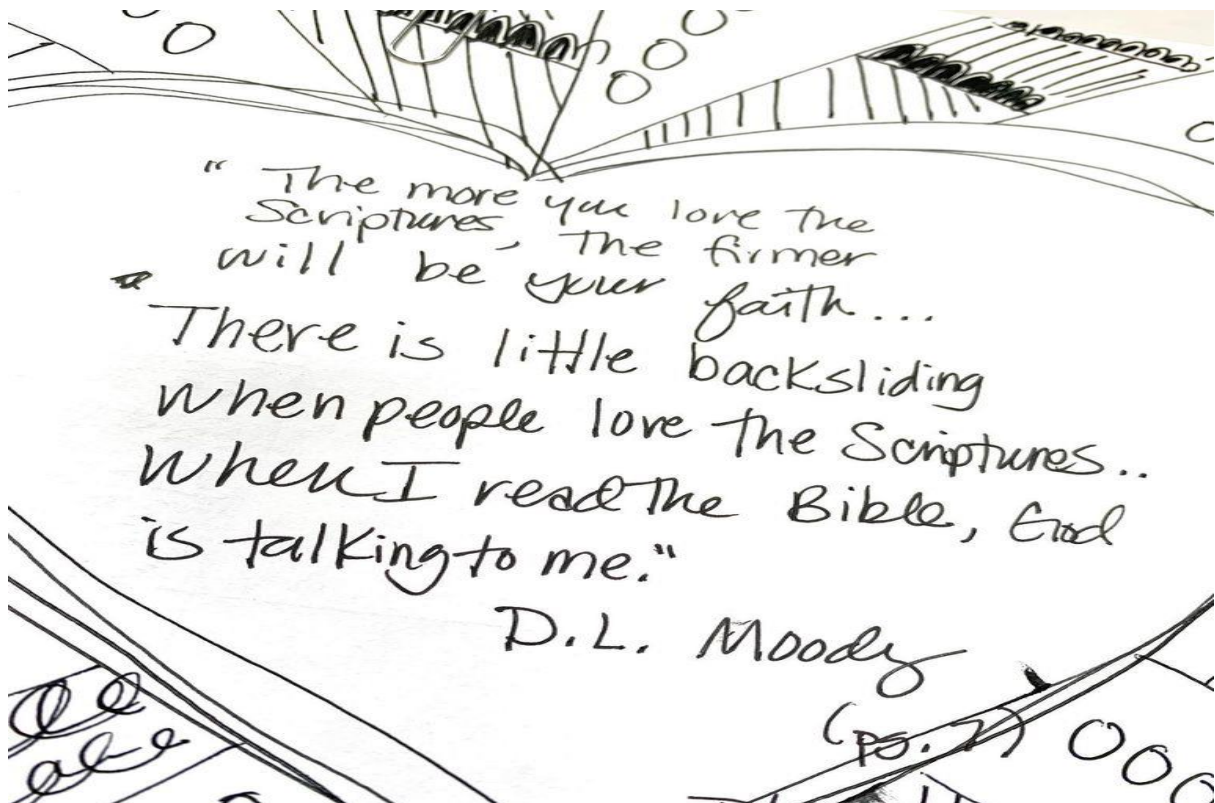 " The more you love the
Scriptures, The firmer
will be your faith...
There is little backsliding
when people love the Scriptures..
When I read the Bible, God
is talking to me."
D.L. Moody
(pg. 7)